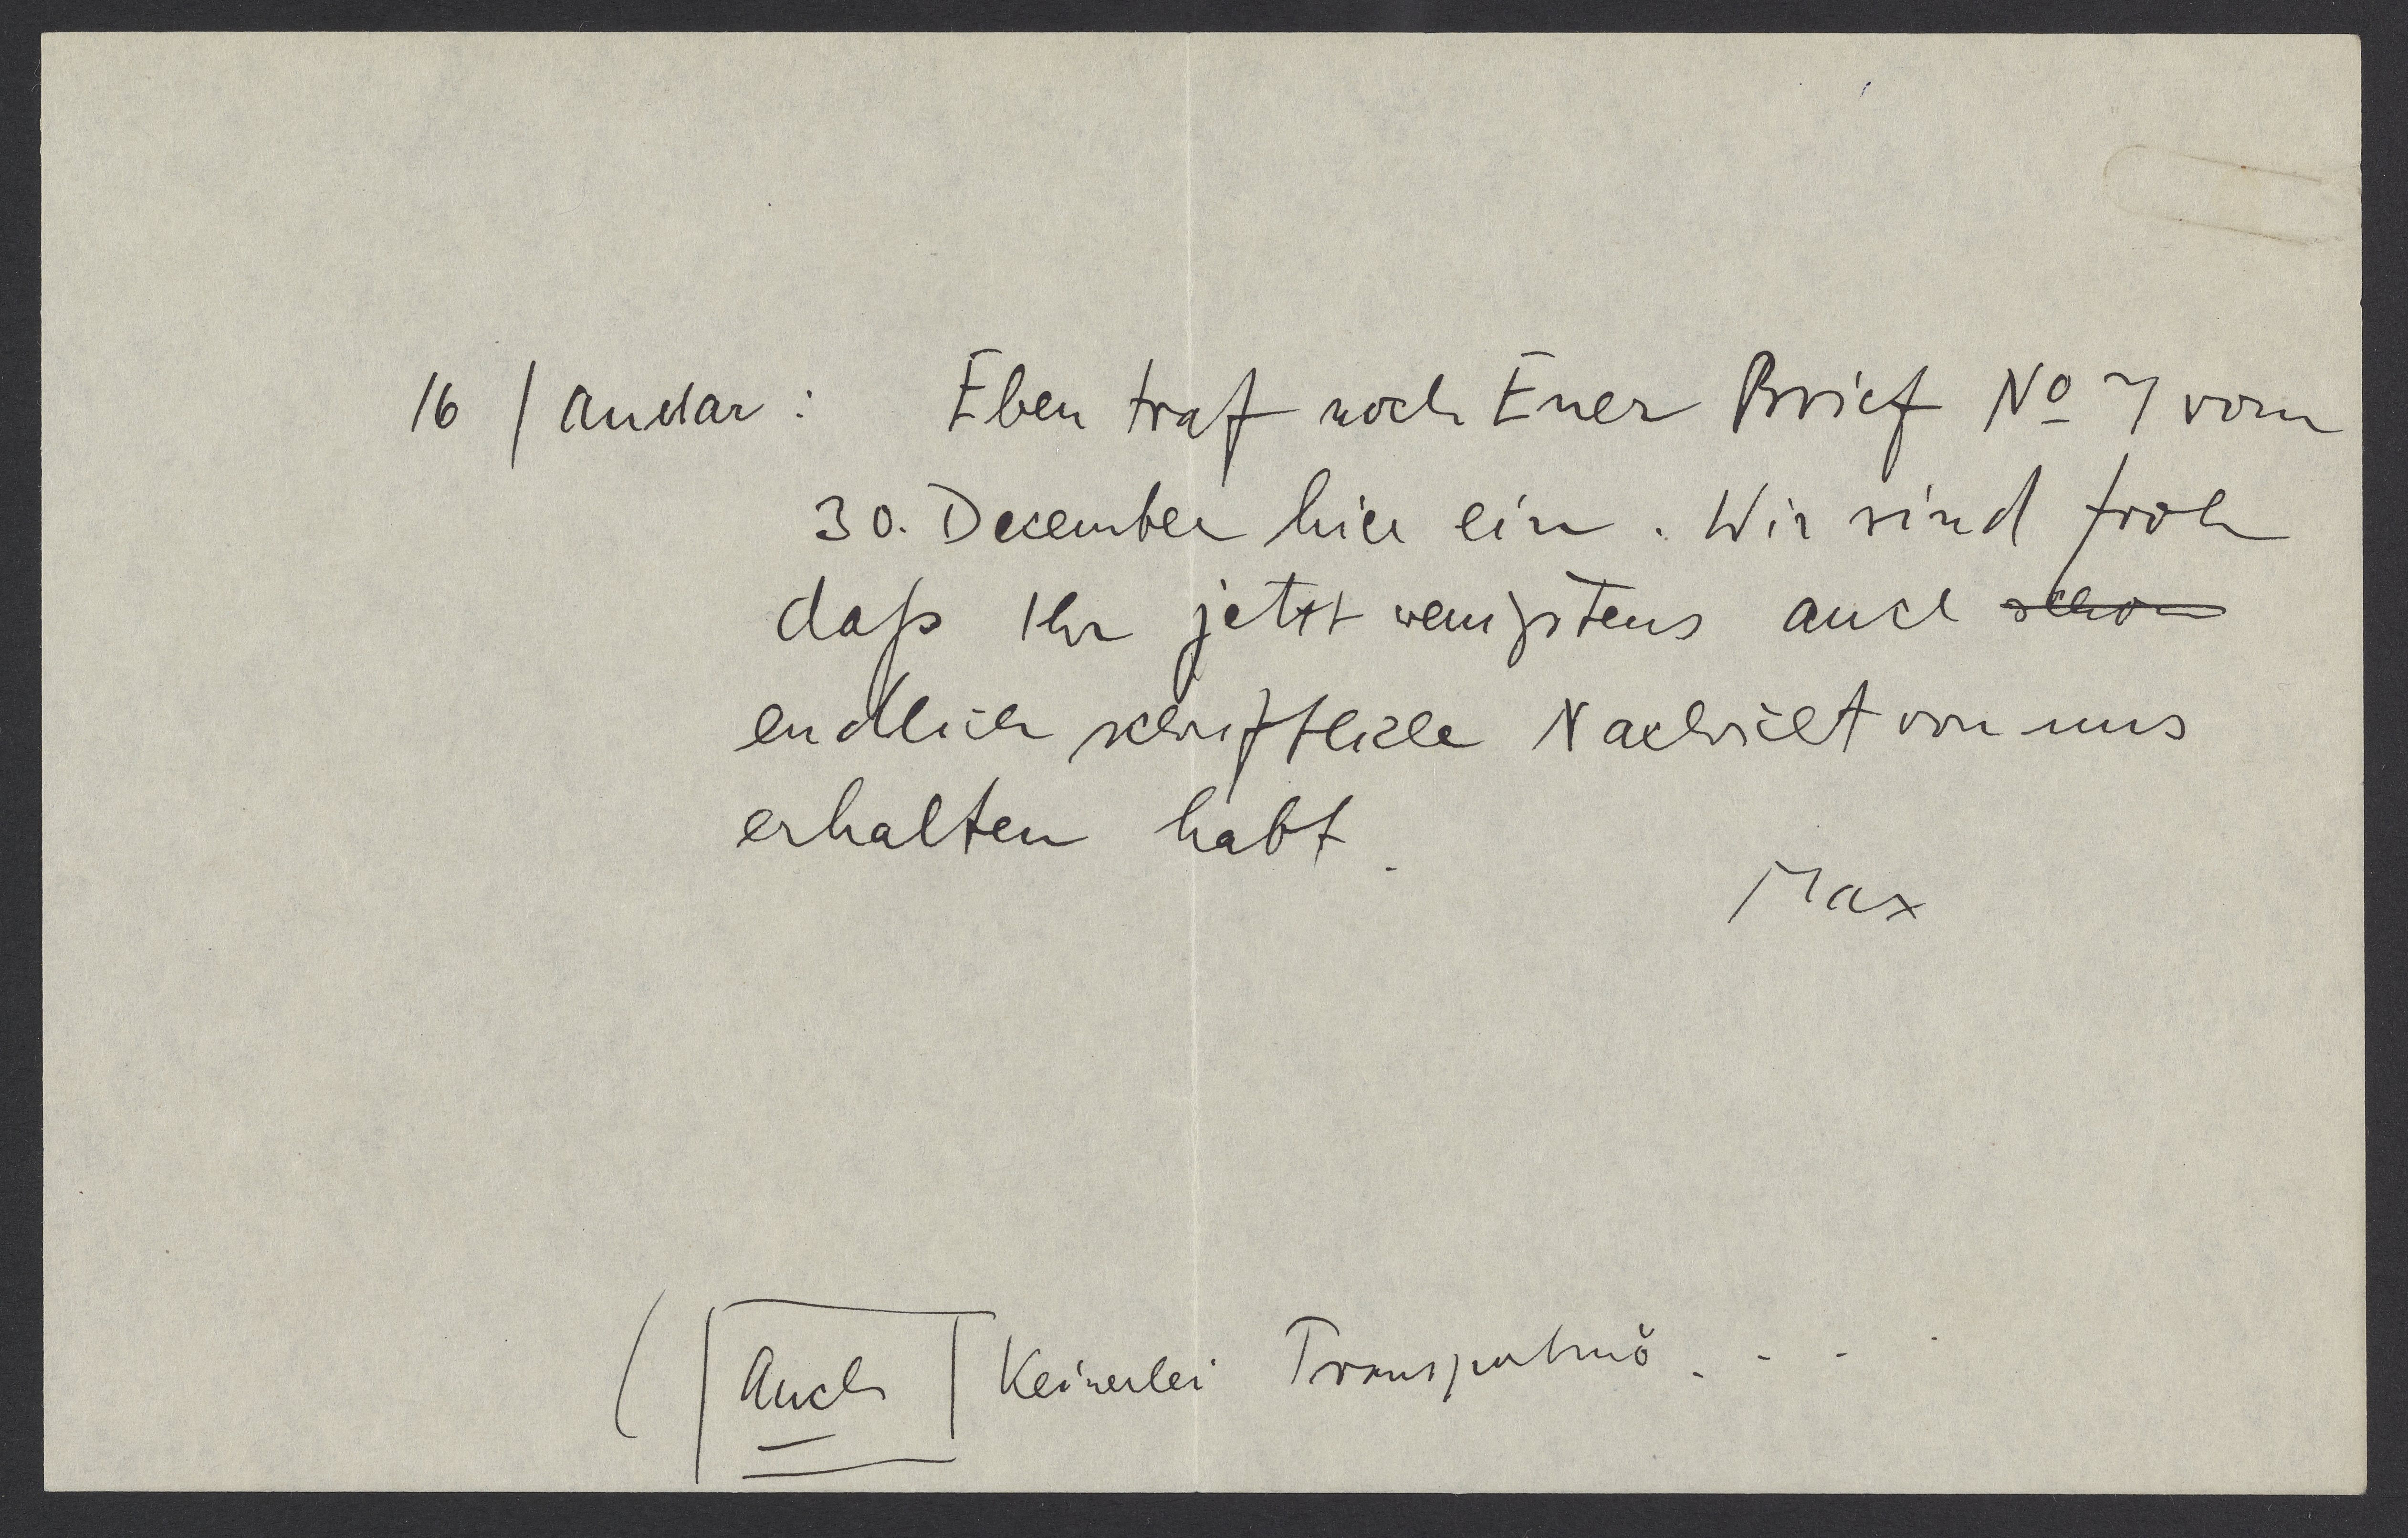 16 / Andar : Eben traf noch Euer Brief Nº 7 vom
30. December hier ein. Wir sind froh
daß Ihr jetzt wenigstens auch schon
endlich schriftliche Nachricht von uns
erhalten habt.
Max
( Auch Keinerlei